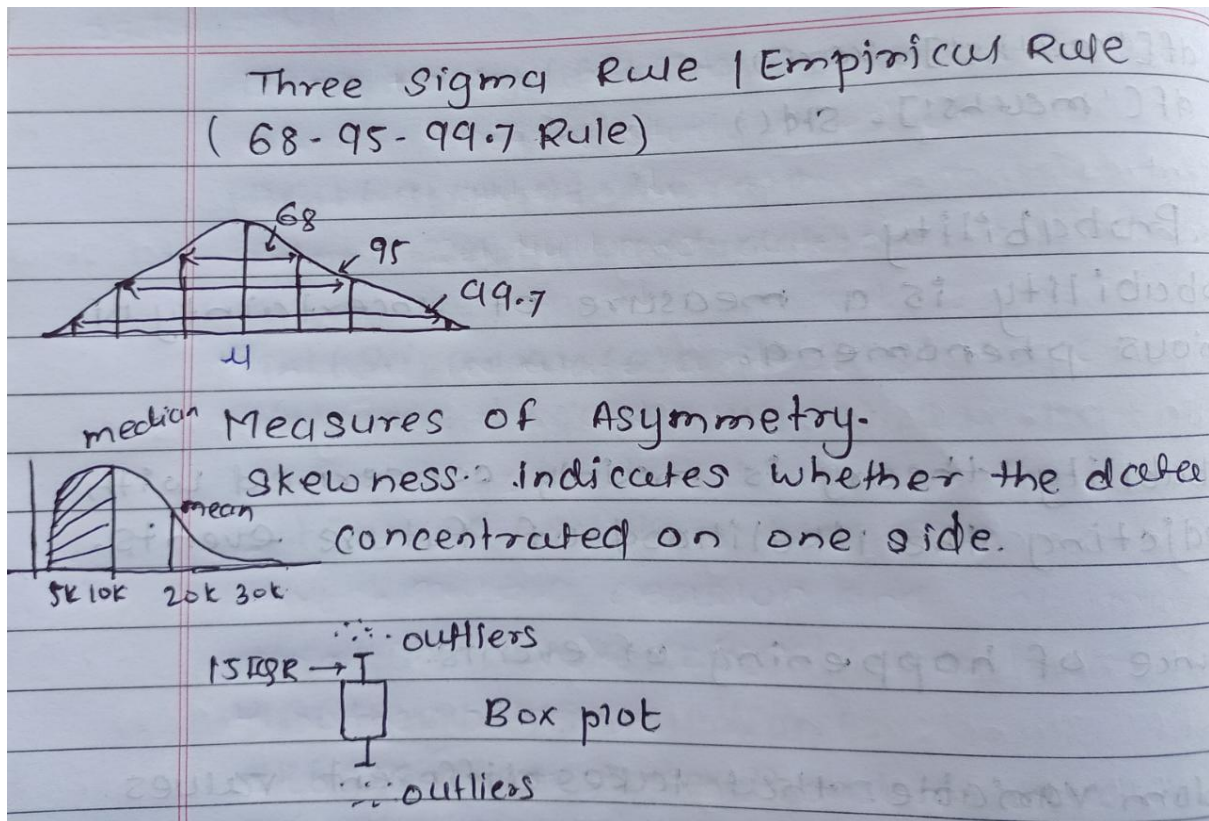 Three Sigma Rule / Empirical Rule
(68-95-99.7 Rule)
68
95
99.7
μ
median Measures of Asymmetry.
Skewness: Indicates whether the data
mean
concentrated on one side.
5k 10k 20k 30k
outliers
15 IQR →
Box plot
outliers